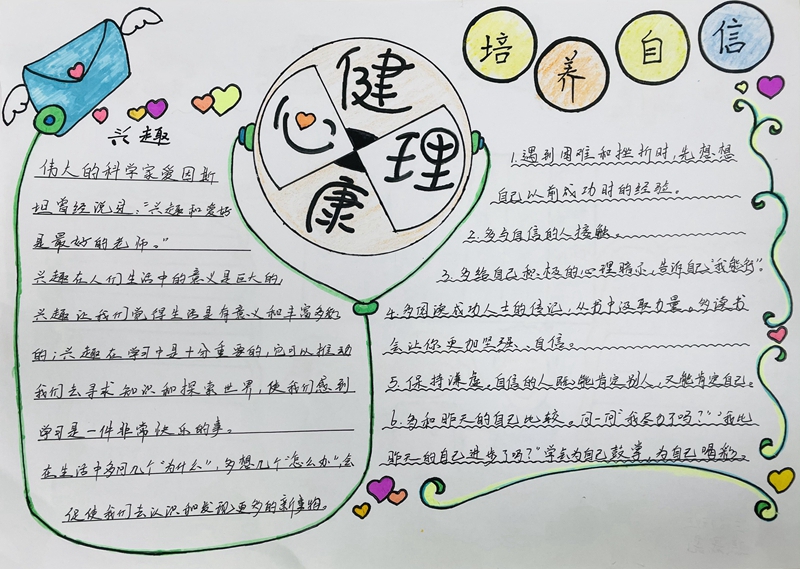 心理健康
兴趣
伟人的科学家爱因斯
坦曾经说过：“兴趣和爱好
是最好的老师。”
兴趣在人们生活中的意义是巨大的，
兴趣让我们觉得生活是有意义和丰富多彩
的；兴趣在学习中是十分重要的，它可以推动
我们去寻求知识和探索世界，使我们感到
学习是一件非常快乐的事。
在生活中多问几个“为什么”，多想几个“怎么办”，会
促使我们去认识和发现更多的新事物。
培养自信
1.遇到困难和挫折时，先想想
自己以前成功时的经验。
2.多与自信的人接触。
3.多给自己积极的心理暗示，告诉自己“我能行”。
4.多阅读成功人士的传记，从书中汲取力量。多读书
会让你更加坚强、自信。
5.保持谦虚。自信的人既能肯定别人，又能肯定自己。
6.多和昨天的自己比较。问一问“我尽力了吗？”“我比
昨天的自己进步了吗？”学会为自己鼓掌，为自己喝彩。